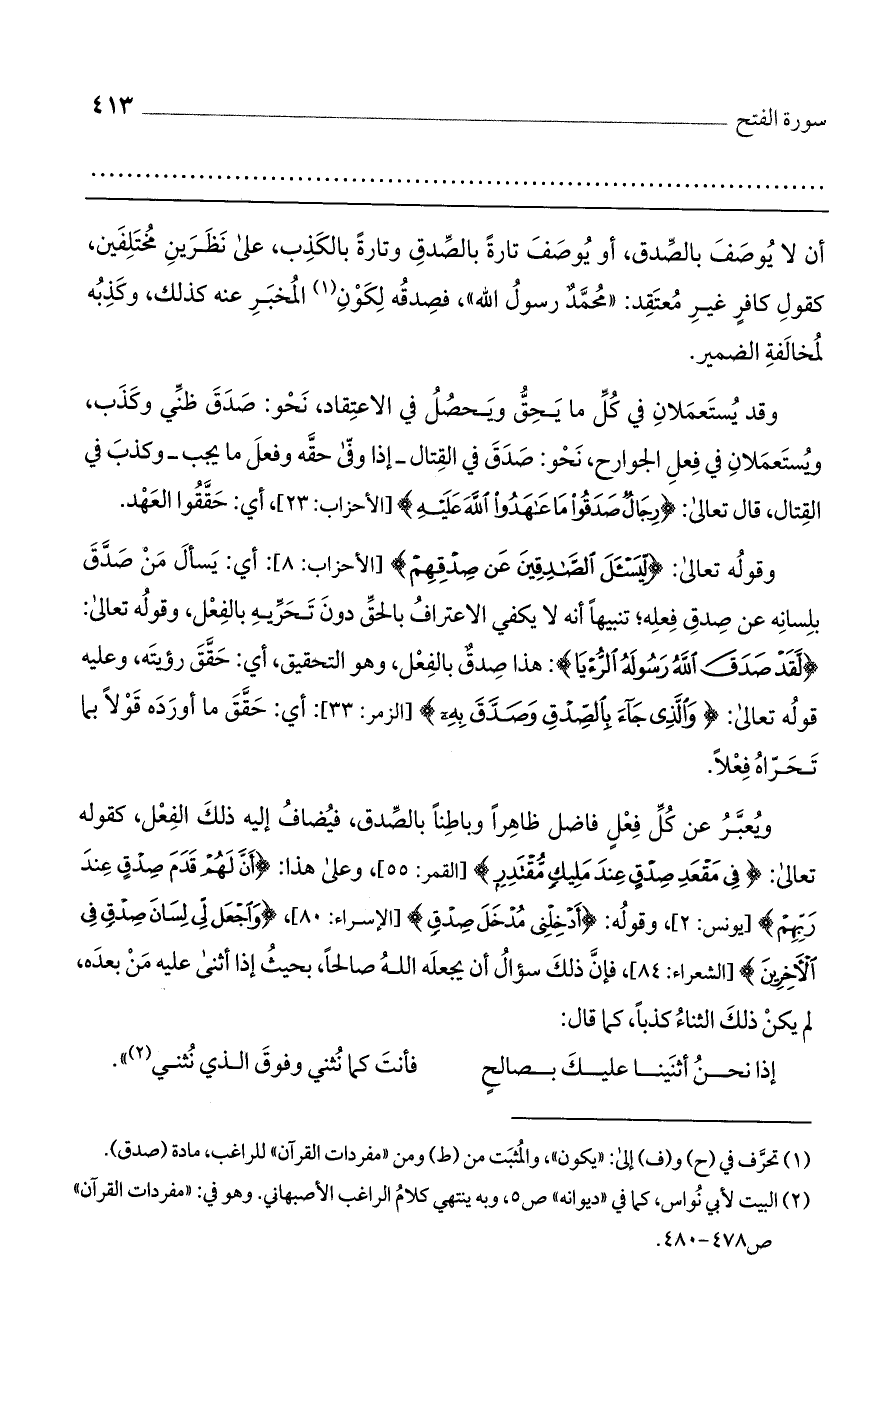 سورة الفتح ٤١٣
أن لا يُوصَفَ بالصِّدق، أو يُوصَفَ تارةً بالصِّدقِ وتارةً بالكَذِب، علىٰ نَظَرَينِ مُختَلِفَين،
كقولِ كافرٍ غيرِ مُعتَقِد: «مُحمَّدٌ رسولُ الله»، فصِدقُه لِكَوْنِ(١) المُخبَرِ عنه كذلك، وكَذِبُه
لمُخالَفةِ الضمير.
وقد يُستَعمَلانِ في كُلِّ ما يَحِقُّ ويَحصُلُ في الاعتِقاد، نَحْو: صَدَقَ ظنِّي وكَذَب،
ويُستَعمَلانِ في فِعلِ الجوارح، نَحْو: صَدَقَ في القِتال ـ إذا وفّىٰ حقَّه وفعلَ ما يجب ـ وكذبَ في
القِتال، قال تعالىٰ: ﴿رِجَالٌ صَدَقُوا۟ مَا عَـٰهَدُوا۟ ٱللَّهَ عَلَيْهِ﴾ [الأحزاب: ٢٣]، أي: حَقَّقُوا العَهْد.
وقولُه تعالىٰ: ﴿لِّيَسْـَٔلَ ٱلصَّـٰدِقِينَ عَن صِدْقِهِمْ﴾ [الأحزاب: ٨]: أي: يَسألَ مَنْ صَدَّقَ
بلِسانِه عن صِدقِ فِعلِه؛ تنبيهاً أنه لا يكفي الاعترافُ بالحقِّ دونَ تَحَرِّيهِ بالفِعْل، وقولُه تعالىٰ:
﴿لَّقَدْ صَدَقَ ٱللَّهُ رَسُولَهُ ٱلرُّءْيَا﴾: هذا صِدقٌ بالفِعْل، وهو التحقيق، أي: حَقَّقَ رؤيتَه، وعليه
قولُه تعالىٰ: ﴿وَٱلَّذِى جَآءَ بِٱلصِّدْقِ وَصَدَّقَ بِهِۦ﴾ [الزمر: ٣٣]: أي: حَقَّقَ ما أورَدَه قَوْلاً بما
تَحَرّاهُ فِعْلاً.
ويُعبَّرُ عن كُلِّ فِعْلٍ فاضل ظاهِراً وباطِناً بالصِّدق، فيُضافُ إليه ذلكَ الفِعْل، كقوله
تعالىٰ: ﴿فِى مَقْعَدِ صِدْقٍ عِندَ مَلِيكٍ مُّقْتَدِرٍ﴾ [القمر: ٥٥]، وعلىٰ هذا: ﴿أَنَّ لَهُمْ قَدَمَ صِدْقٍ عِندَ
رَبِّهِمْ﴾ [يونس: ٢]، وقولُه: ﴿أَدْخِلْنِى مُدْخَلَ صِدْقٍ﴾ [الإسراء: ٨٠]، ﴿وَٱجْعَل لِّى لِسَانَ صِدْقٍ فِى
ٱلْـَٔاخِرِينَ﴾ [الشعراء: ٨٤]، فإنَّ ذلكَ سؤالُ أن يجعلَه اللهُ صالحاً، بحيثُ إذا أثنىٰ عليه مَنْ بعدَه،
لم يكنْ ذلكَ الثناءُ كذباً، كما قال:
إذا نحنُ أثنَينا عليكَ بصالحٍ فأنتَ كما نُثني وفوقَ الذي نُثني(٢)».
(١) تحرَّف في (ح) و(ف) إلىٰ: «يكون»، والمُثبَت من (ط) ومن «مفردات القرآن» للراغب، مادة (صدق).
(٢) البيت لأبي نُواس، كما في «ديوانه» ص٥، وبه ينتهي كلامُ الراغب الأصبهاني. وهو في: «مفردات القرآن»
ص٤٧٨-٤٨٠.